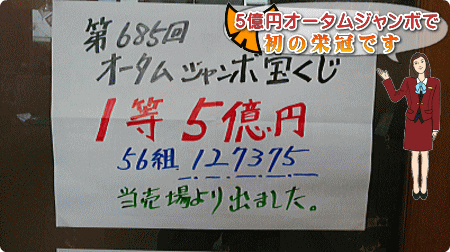 5億円オータムジャンボで
初の栄冠です
第685回
オータムジャンボ宝くじ
1等5億円
56組127375
当売場より出ました。